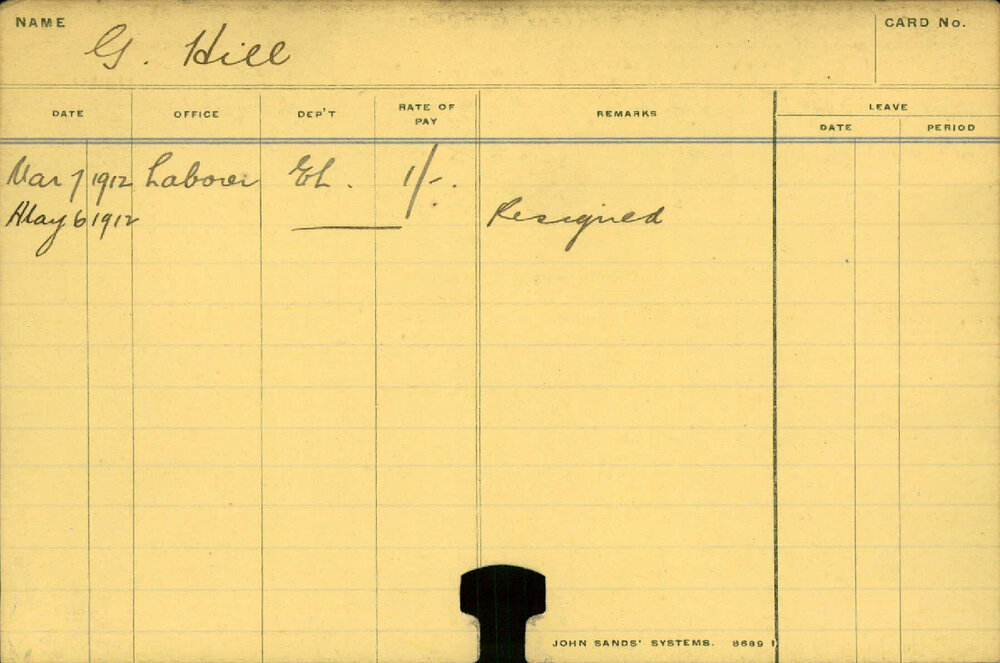 NAME G. Hill CARD No.
DATE OFFICE DEP'T RATE OF PAY REMARKS LEAVE
DATE PERIOD
Mar 7 1912 Laborer EL. 1/-.
May 6 1912 Resigned
JOHN SANDS' SYSTEMS. 8689 1